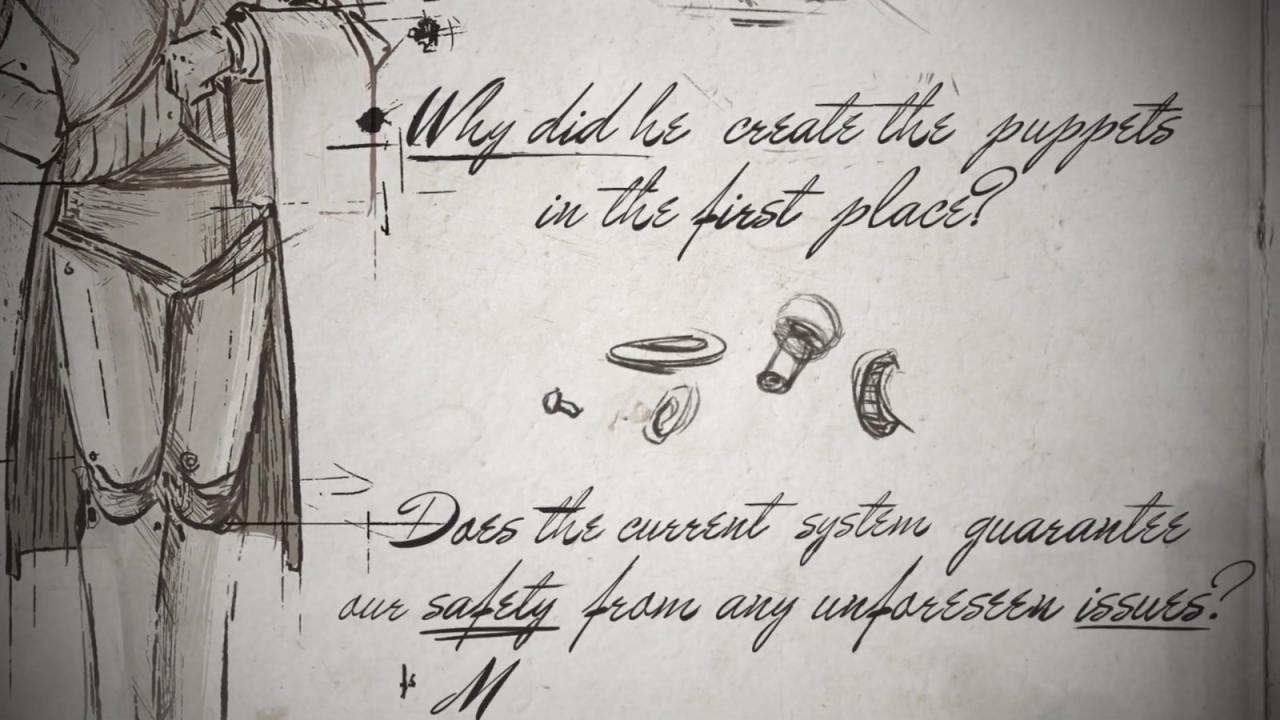 Why did he create the puppets
in the first place?
Does the current system guarantee
our safety from any unforeseen issues?
M